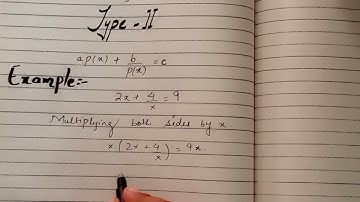 Type - II
ap(x) + b/p(x) = c
Example:-
2x + 4/x = 9
Multiplying both sides by x.
x(2x + 4/x) = 9x.